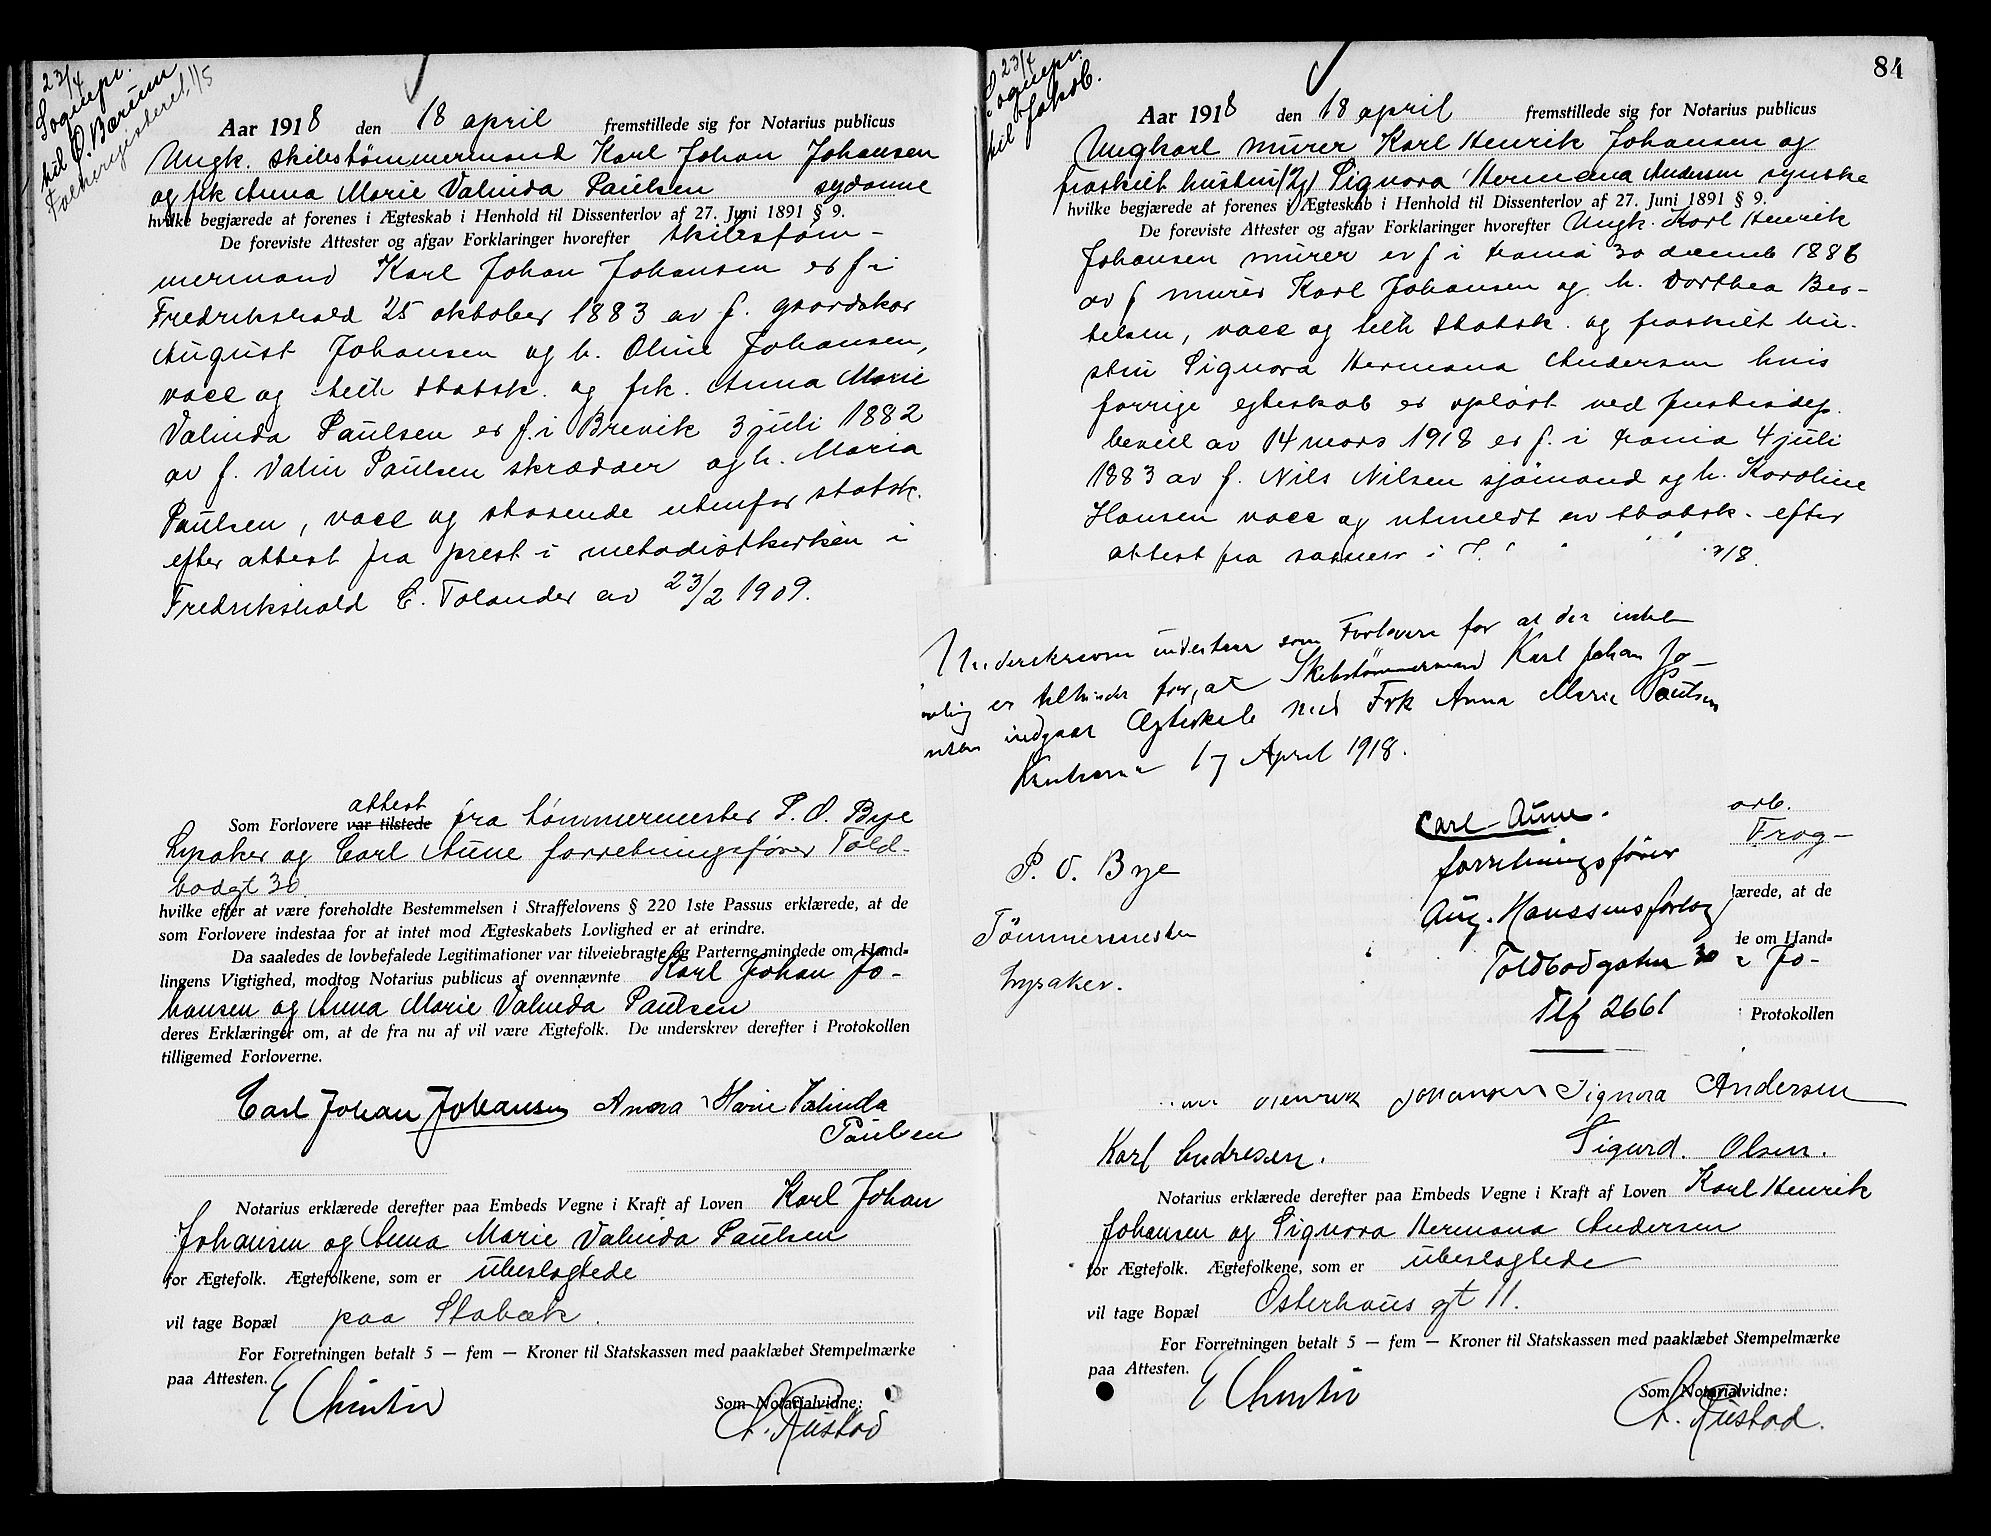 23/4
Sognepr.
til Ø. Bærum
Folkeregisteret 1/5
Aar 1918 den 18 april fremstillede sig for Notarius publicus
Ungk. skibstømmermand Karl Johan Johansen
og frk Anna Marie Valinda Paulsen
hvilke begjærede at forenes i Ægteskab i Henhold til Dissenterlov af 27. Juni 1891 § 9.
De foreviste Attester og afgav Forklaringer hvorefter skibstøm-
mermand Karl Johan Johansen er f i
Fredrikshald 25 oktober 1883 av f. gaardskar
August Johansen og h. Oline Johansen,
vacc og tilh statsk. og frk. Anna Marie
Valinda Paulsen er f. i Brevik 3 juli 1882
av f. Valin Paulsen skrædder og h. Maria
Paulsen, vacc og staaende utenfor statsk.
efter attest fra prest i metodistkirken i
Fredrikshald C. Tolander av 23/2 1909.
attest
Som Forlovere var tilstede fra tømmermester P. O. Bye
Lysaker og Carl Aune forretningsfører Told-
bodgt 30
hvilke efter at være foreholdte Bestemmelsen i Straffelovens § 220 1ste Passus erklærede, at de
som Forlovere indestaa for at intet mod Ægteskabets Lovlighed er at erindre.
Da saaledes de lovbefalede Legitimationer var tilveiebragte og Parterne mindede om Hand-
lingens Vigtighed, modtog Notarius publicus af ovennævnte Karl Johan Jo-
hansen og Anna Marie Valinda Paulsen
deres Erklæringer om, at de fra nu af vil være Ægtefolk. De underskrev derefter i Protokollen
tilligemed Forloverne.
Carl Johan Johansen Anna Marie Valinda
Paulsen
Notarius erklærede derefter paa Embeds Vegne i Kraft af Loven Karl Johan
Johansen og Anna Marie Valinda Paulsen
for Ægtefolk. Ægtefolkene, som er ubeslegtede
vil tage Bopæl paa Stabæk.
For Forretningen betalt 5 — fem — Kroner til Statskassen med paaklæbet Stempelmærke
paa Attesten.
Som Notarialvidne:
A. Rustad
84
23/4
Sognepr.
til Jakob.
Aar 1918 den 18 april fremstillede sig for Notarius publicus
Ungkarl murer Karl Henrik Johansen og
fraskilt hustru Signora Hermana Andersen
hvilke begjærede at forenes i Ægteskab i Henhold til Dissenterlov af 27. Juni 1891 § 9.
De foreviste Attester og afgav Forklaringer hvorefter Ungk. Karl Henrik
Johansen murer er f i Krania 30 decemb 1886
av f murer Karl Johansen og h. Dorthea Ber-
telsen, vacc og tilh statsk. og fraskilt hu-
stru Signora Hermana Andersen hvis
forrige egteskab er opløst ved justisdep.
bevill av 14 mars 1918 er f. i Krania 4 juli
1883 av f. Nils Nilsen sjømand og h. Karoline
Hansen vacc og utmeldt av statsk. efter
attest fra
Underskrevne indestaar som Forlovere for at der intet
er tilhinder for, at Skibstømmermand Karl Johan Jo-
nsen indgaar Ægteskab med Frk Anna Marie Paulsen
Kristiania 17 April 1918.
P. O. Bye
Tømmermester
Lysaker.
Carl Aune.
forretningsfører
Aug. Hanssens forlag
Toldbodgaten 30
Tlf 2661
arb.
Frog-
lærede, at de
de om Hand-
Jo-
Protokollen
Henrik Johansen Signora Andersen
Karl Andresen. Sigurd. Olsen.
Notarius erklærede derefter paa Embeds Vegne i Kraft af Loven Karl Henrik
Johansen og Signora Hermana Andersen
for Ægtefolk. Ægtefolkene, som er ubeslegtede
vil tage Bopæl Osterhaus gt 11.
For Forretningen betalt 5 — fem — Kroner til Statskassen med paaklæbet Stempelmærke
paa Attesten.
Som Notarialvidne:
A. Rustad.